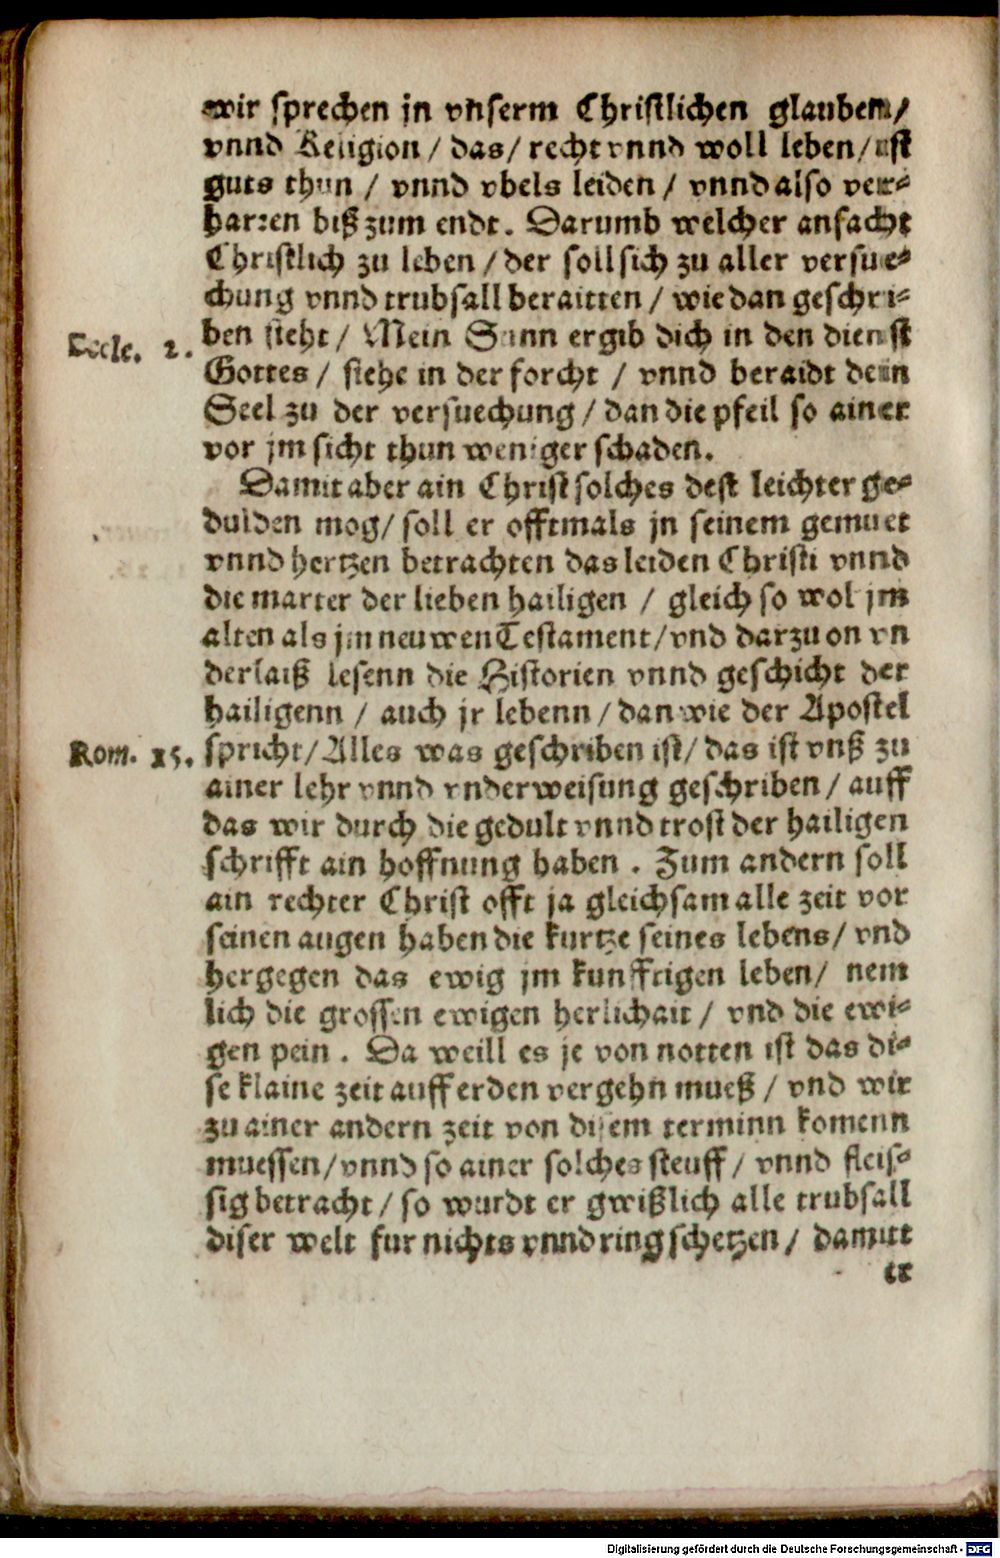 wir sprechen jn vnserm Christlichen glauben/
vnnd Religion / das / recht vnnd woll leben / ist
guts thun / vnnd vbels leiden / vnnd also ver-
harren biß zum endt. Darumb welcher anfacht
Christlich zu leben / der soll sich zu aller versue-
chung vnnd trubsall beraitten / wie dan geschri-
ben steht / Mein Sunn ergib dich in den dienst
Eccle. 2.
Gottes / stehe in der forcht / vnnd beraidt dein
Seel zu der versuechung / dan die pfeil so ainer
vor jm sicht thun weniger schaden.
Damit aber ain Christ solches dest leichter ge-
dulden mog / soll er offtmals jn seinem gemuet
vnnd hertzen betrachten das leiden Christi vnnd
die marter der lieben hailigen / gleich so wol jm
alten als jm neuwen Testament / vnd darzu on vn
derlaiß lesenn die Historien vnnd geschicht der
hailigenn / auch jr lebenn / dan wie der Apostel
Rom. 15.
spricht / Alles was geschriben ist / das ist vnß zu
ainer lehr vnnd vnderweisung geschriben / auff
das wir durch die gedult vnnd trost der hailigen
schrifft ain hoffnung haben . Zum andern soll
ain rechter Christ offt ja gleichsam alle zeit vor
seinen augen haben die kurtze seines lebens / vnd
hergegen das ewig jm kunfftigen leben / nem
lich die grossen ewigen herlichait / vnd die ewi-
gen pein . Da weill es je von notten ist das di-
se klaine zeit auff erden vergehn mueß / vnd wir
zu ainer andern zeit von disem terminn komenn
muessen / vnnd so ainer solches steuff / vnnd fleis-
sig betracht / so wurdt er gwißlich alle trubsall
diser welt fur nichts vnnd ring schetzen / damitt
er
Digitalisierung gefördert durch die Deutsche Forschungsgemeinschaft - DFG